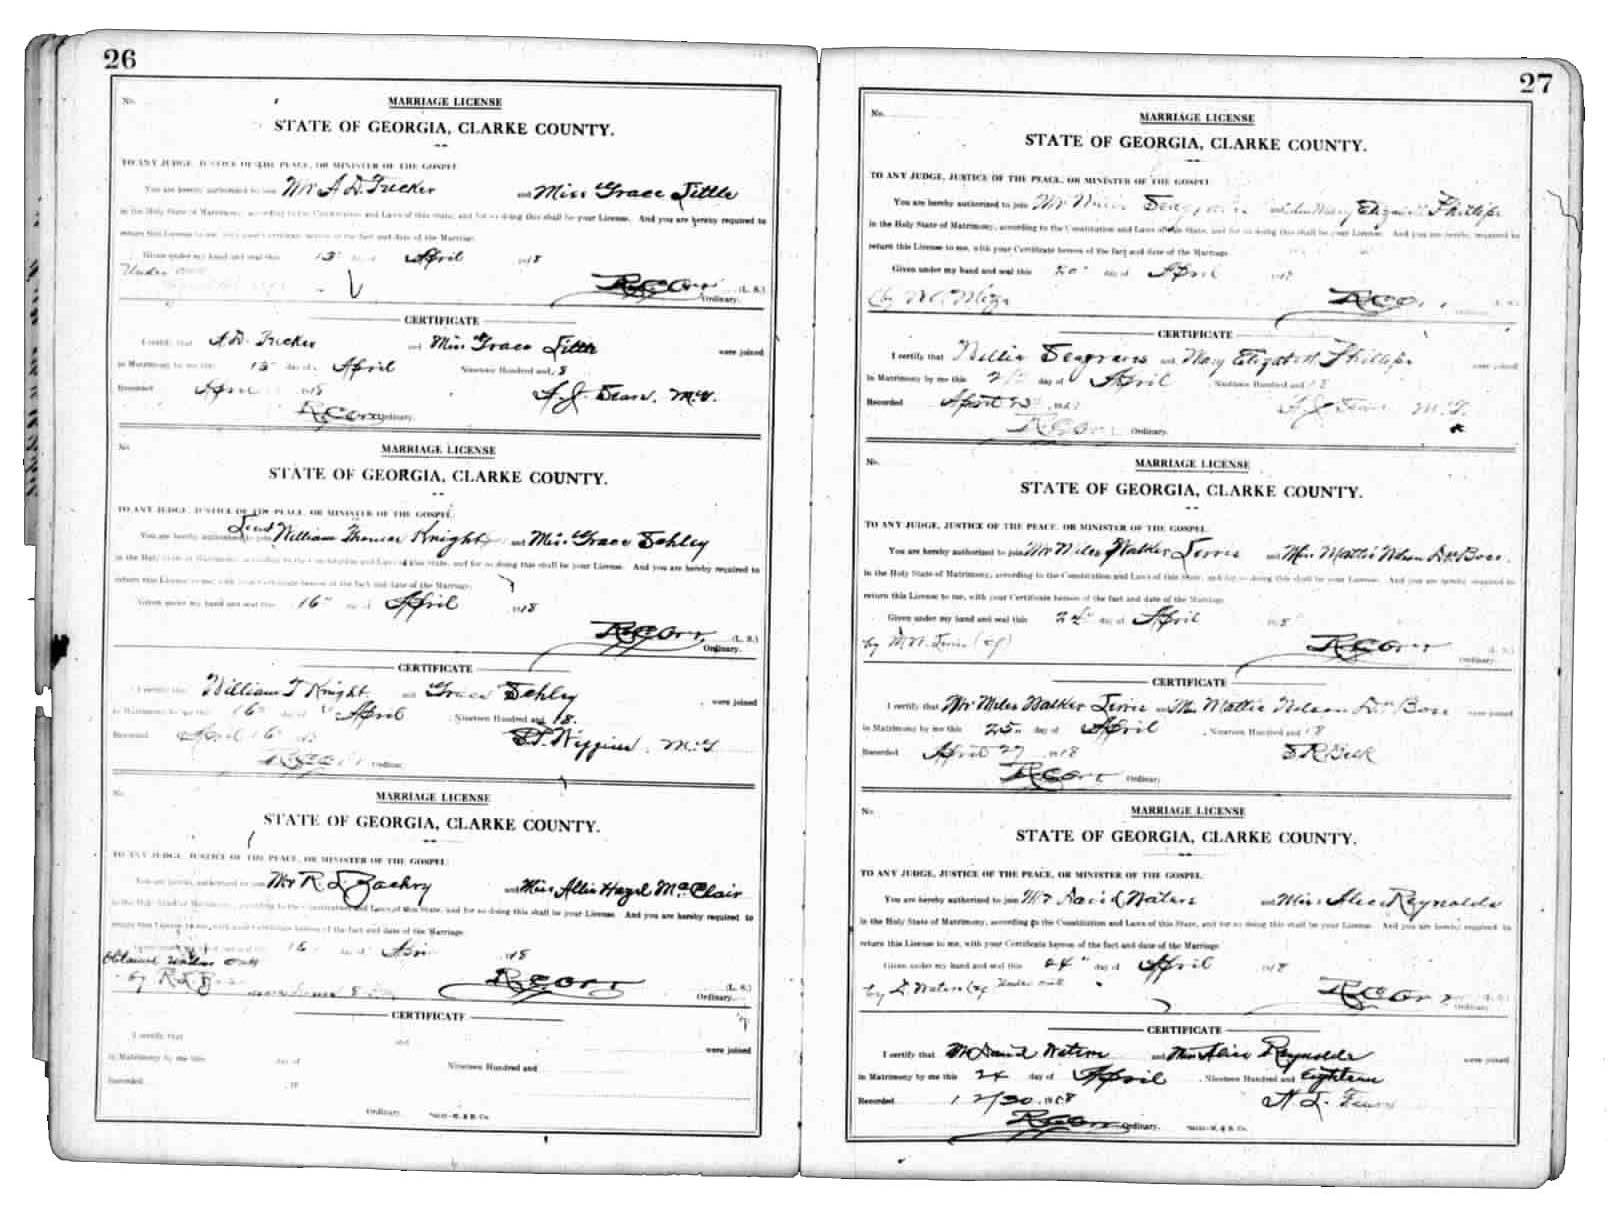 26
No.
MARRIAGE LICENSE
STATE OF GEORGIA, CLARKE COUNTY.
TO ANY JUDGE, JUSTICE OF THE PEACE, OR MINISTER OF THE GOSPEL
You are hereby authorized to join Mr A D. Tucker and Miss Grace Little
in the Holy State of Matrimony, according to the Constitution and Laws of this State, and for so doing this shall be your License. And you are hereby required to
return this License to me, with your Certificate hereon of the fact and date of the Marriage.
Given under my hand and seal this 13 day of April 1918
Under
R C Orr (L. S.)
Ordinary.
CERTIFICATE
I certify that A. D. Tucker and Miss Grace Little were joined
in Matrimony by me this day of April Nineteen Hundred and 18
Recorded April 1918 A. J. M.G.
R C Orr Ordinary.
No.
MARRIAGE LICENSE
STATE OF GEORGIA, CLARKE COUNTY.
TO ANY JUDGE, JUSTICE OF THE PEACE, OR MINISTER OF THE GOSPEL
You are hereby authorized to join Lieut William Thomas Knight and Miss Grace Schley
in the Holy State of Matrimony, according to the Constitution and Laws of this State, and for so doing this shall be your License. And you are hereby required to
return this License to me, with your Certificate hereon of the fact and date of the Marriage.
Given under my hand and seal this 16" day of April 1918
R C Orr (L. S.)
Ordinary.
CERTIFICATE
I certify that William T Knight and Grace Schley were joined
in Matrimony by me this 16" day of April, Nineteen Hundred and 18.
Recorded April 16 Wiggins. M.G.
R C Orr Ordinary.
No.
MARRIAGE LICENSE
STATE OF GEORGIA, CLARKE COUNTY.
TO ANY JUDGE, JUSTICE OF THE PEACE, OR MINISTER OF THE GOSPEL
You are hereby authorized to join Mr R. L. Zachry and Miss Allie Hazel McClair
in the Holy State of Matrimony, according to the Constitution and Laws of this State, and for so doing this shall be your License. And you are hereby required to
return this License to me, with your Certificate hereon of the fact and date of the Marriage.
Given under my hand and seal this 16 day of April 1918
Obtained under oath
by R L R C Orr (L. S.)
Ordinary.
CERTIFICATE
I certify that and were joined
in Matrimony by me this day of Nineteen Hundred and
Recorded , 19
Ordinary.
27
No.
MARRIAGE LICENSE
STATE OF GEORGIA, CLARKE COUNTY.
TO ANY JUDGE, JUSTICE OF THE PEACE, OR MINISTER OF THE GOSPEL
You are hereby authorized to join Mr Seagraves and Miss Mary Elizabeth Phillips
in the Holy State of Matrimony, according to the Constitution and Laws of this State, and for so doing this shall be your License. And you are hereby required to
return this License to me, with your Certificate hereon of the fact and date of the Marriage.
Given under my hand and seal this 20" day of April 1918
R C Orr (L. S.)
Ordinary.
CERTIFICATE
I certify that Seagraves and Mary Elizabeth Phillips were joined
in Matrimony by me this day of April, Nineteen Hundred and 18
Recorded April A J M.G.
R C Orr Ordinary.
No.
MARRIAGE LICENSE
STATE OF GEORGIA, CLARKE COUNTY.
TO ANY JUDGE, JUSTICE OF THE PEACE, OR MINISTER OF THE GOSPEL.
You are hereby authorized to join Mr Miles Walker and Miss Mattie Nelson DuBose.
in the Holy State of Matrimony, according to the Constitution and Laws of this State, and for so doing this shall be your License. And you are hereby required to
return this License to me, with your Certificate hereon of the fact and date of the Marriage.
Given under my hand and seal this 24" day of April 1918
by M. W. R C Orr (L. S.)
Ordinary.
CERTIFICATE
I certify that Mr Miles Walker and Miss Mattie Nelson DuBose were joined
in Matrimony by me this 25" day of April, Nineteen Hundred and 18
Recorded April 27 1918 S R Belk
R C Orr Ordinary.
No.
MARRIAGE LICENSE
STATE OF GEORGIA, CLARKE COUNTY.
TO ANY JUDGE, JUSTICE OF THE PEACE, OR MINISTER OF THE GOSPEL
You are hereby authorized to join Mr David Waters and Miss Alice Reynolds
in the Holy State of Matrimony, according to the Constitution and Laws of this State, and for so doing this shall be your License. And you are hereby required to
return this License to me, with your Certificate hereon of the fact and date of the Marriage.
Given under my hand and seal this 24" day of April 1918
by D. Waters under oath R C Orr (L. S.)
Ordinary.
CERTIFICATE
I certify that Mr David Waters and Miss Alice Reynolds were joined
in Matrimony by me this 24 day of April, Nineteen Hundred and Eighteen
Recorded 12/30, 1918
R C Orr Ordinary.